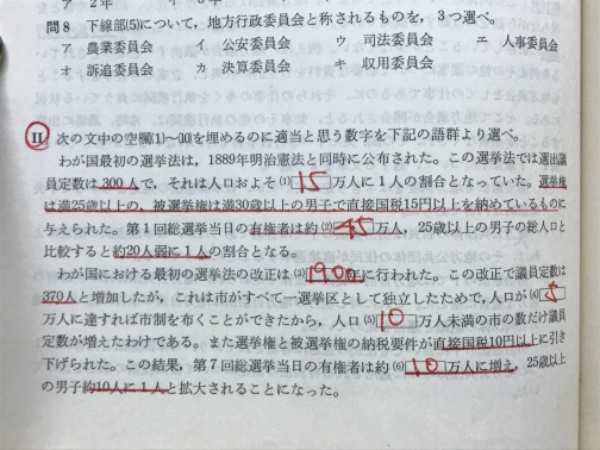 ア 2年 イ 6年
問8 下線部(5)について，地方行政委員会と称されるものを，3つ選べ。
ア 農業委員会 イ 公安委員会 ウ 司法委員会 エ 人事委員会
オ 訴追委員会 カ 決算委員会 キ 収用委員会
II 次の文中の空欄(1)〜(10)を埋めるのに適当と思う数字を下記の語群より選べ。
わが国最初の選挙法は，1889年明治憲法と同時に公布された。この選挙法では選出議
員定数は300人で，それは人口およそ(1)15万人に1人の割合となっていた。選挙権
は満25歳以上の，被選挙権は満30歳以上の男子で直接国税15円以上を納めているものに
与えられた。第1回総選挙当日の有権者は約(2)45万人，25歳以上の男子の総人口と
比較すると約20人弱に1人の割合となる。
わが国における最初の選挙法の改正は(3)1900年に行われた。この改正で議員定数は
370人と増加したが，これは市がすべて一選挙区として独立したためで，人口が(4)5
万人に達すれば市制を布くことができたから，人口(5)10万人未満の市の数だけ議員
定数が増えたわけである。また選挙権と被選挙権の納税要件が直接国税10円以上に引き
下げられた。この結果，第7回総選挙当日の有権者は約(6)10万人に増え，25歳以上
の男子約10人に1人と拡大されることになった。